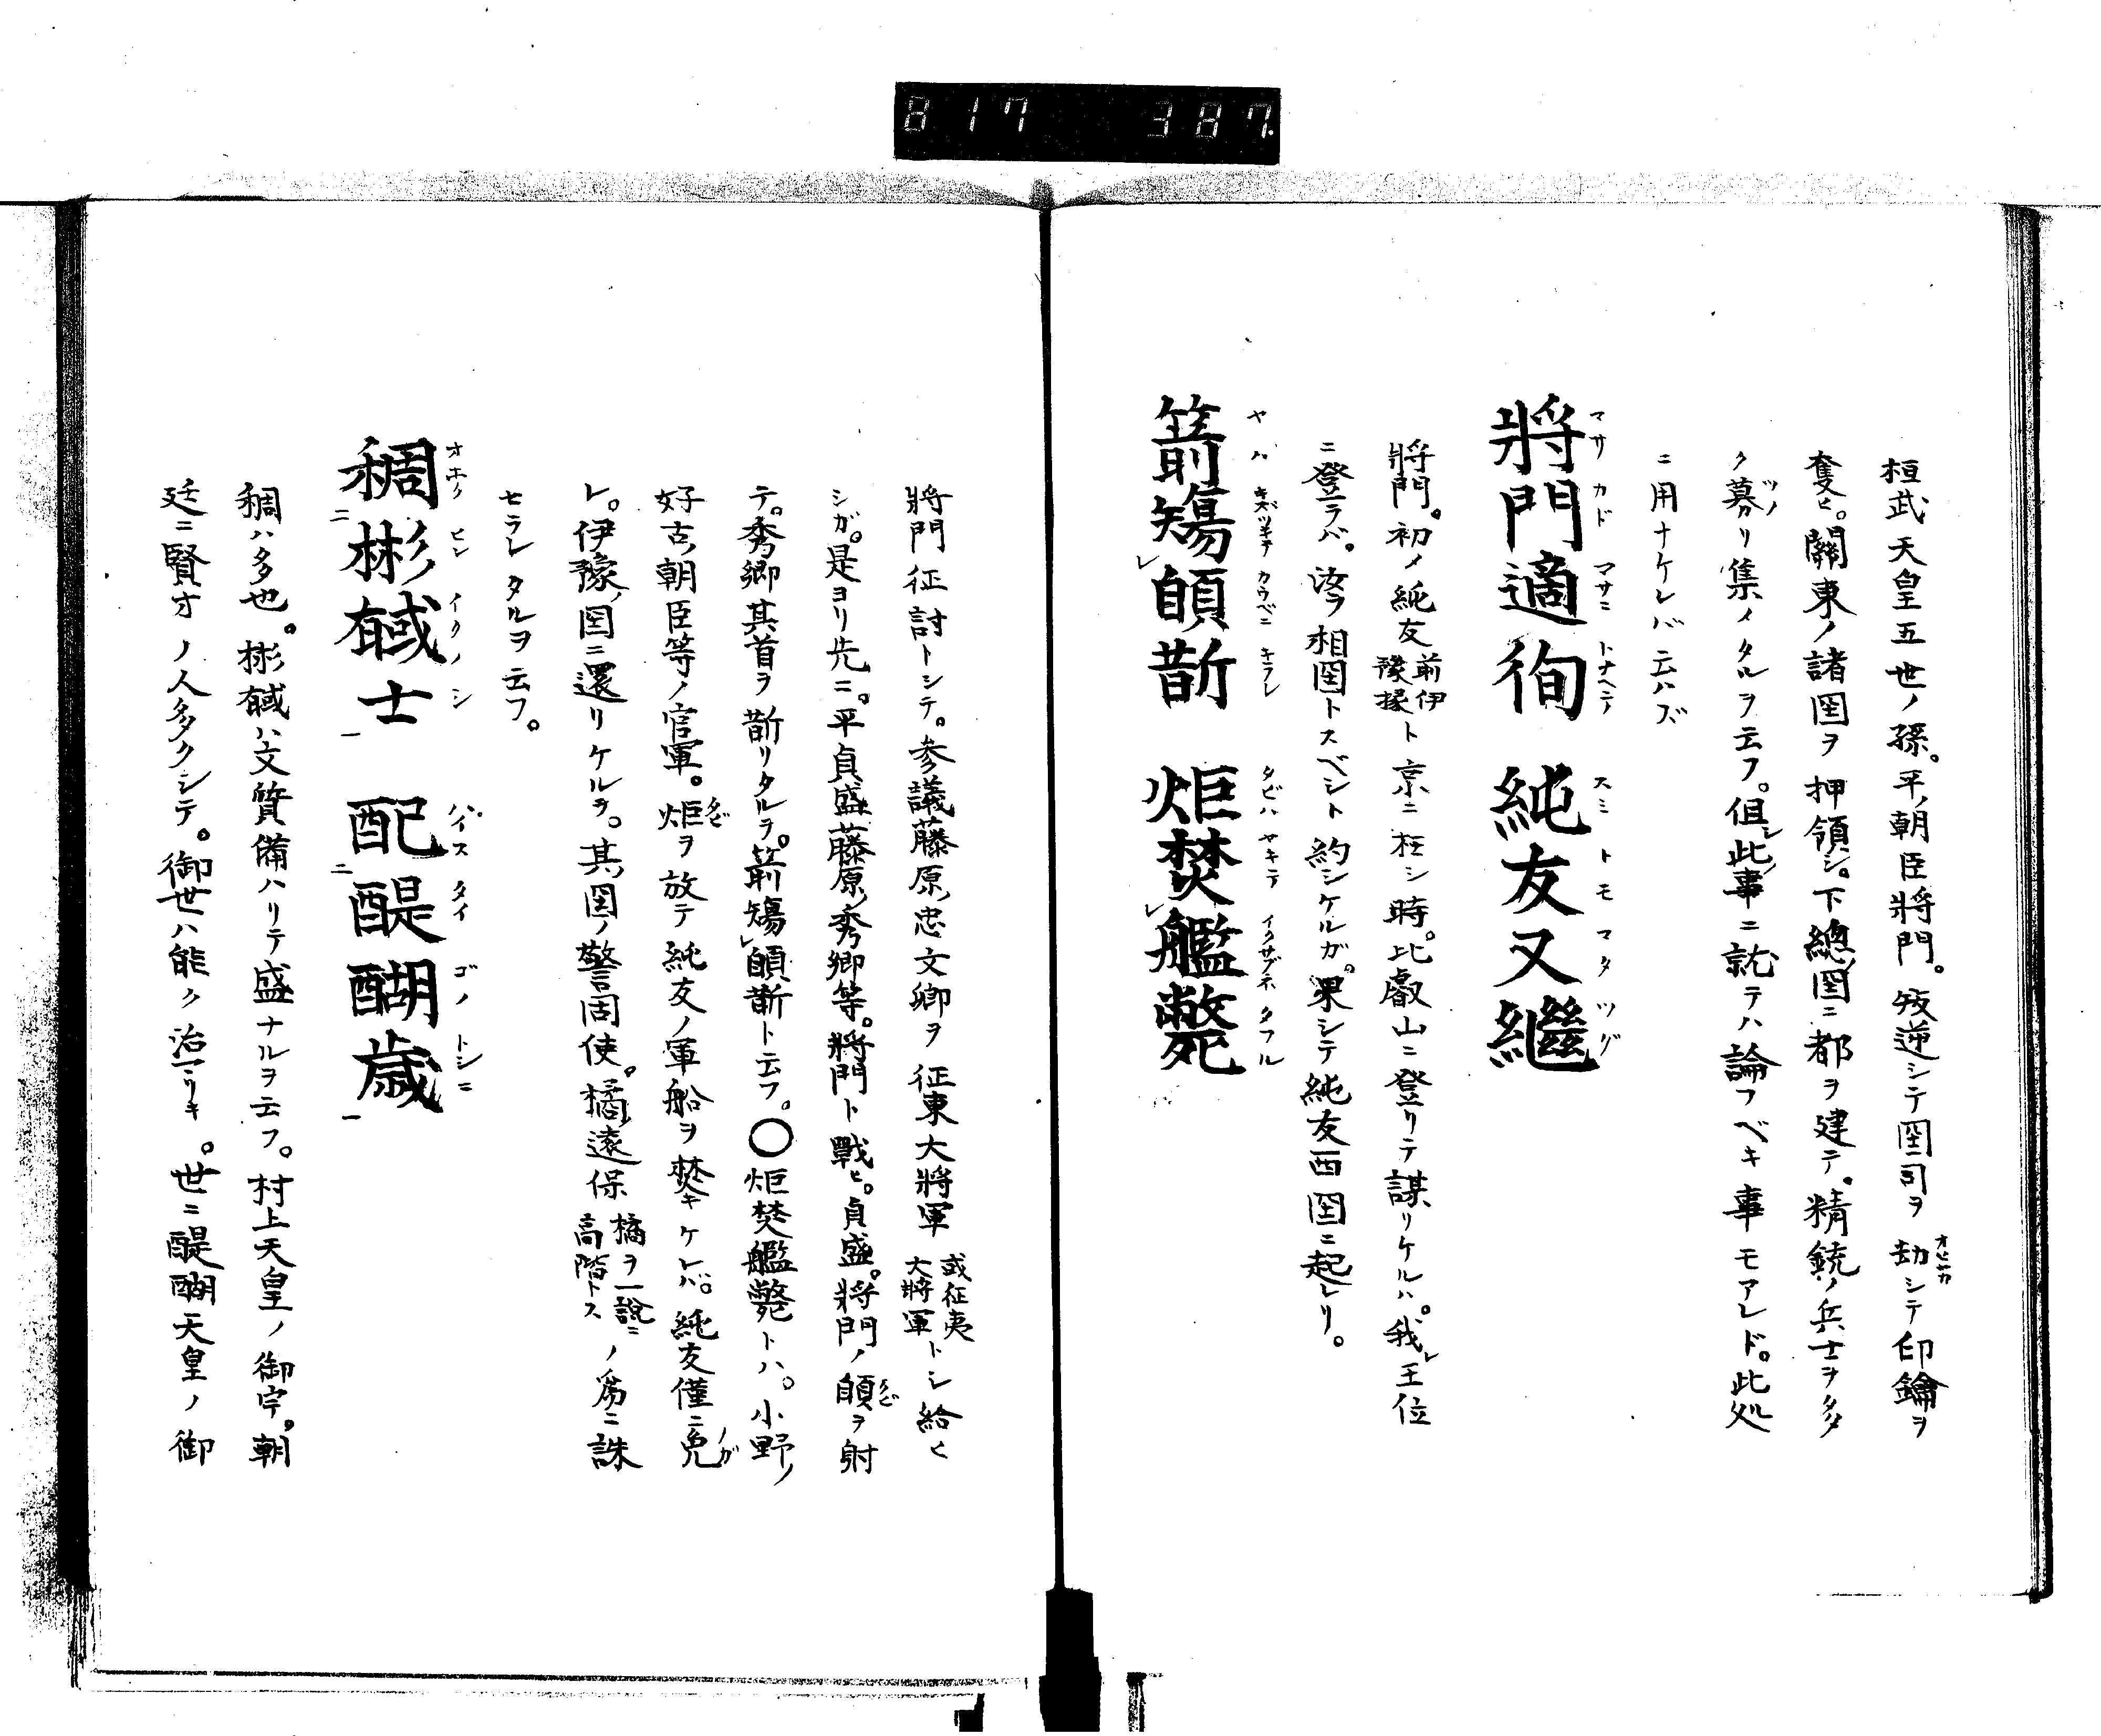 817 387.
桓武天皇五世ノ孫。平ノ朝臣將門。叛逆シテ国司ヲ劫シテ印鑰ヲ
奪ヒ。關東ノ諸国ヲ押領シ。下總ノ国ニ都ヲ建テ。精銳ノ兵士ヲ多
ク募リ集メタルヲ云フ。但シ此ノ事ニ就テハ論フベキ事モアレド。此処
ニ用ナケレバ云ハズ
將門適徇 純友又繼
マサカドマサニトナヘテ スミトモマタツグ
將門。初メ純友前伊豫掾ト京ニ在シ時。比叡山ニ登リテ謀リケルハ。我レ王位
ニ登ラバ。汝ヲ相国トスベシト約シケルガ。果シテ純友西国ニ起レリ。
箭瘍䪴斮 炬焚艦斃
ヤハキズツキテカウベニキラレ タビハヤキテイクサブネタフル
將門征討トシテ。参議藤原ノ忠文卿ヲ征東大將軍或征夷大將軍トシ給ヒ
シガ。是ヨリ先ニ。平貞盛藤原ノ秀卿等。將門ト戰ヒ。貞盛。將門ノ䪴ヲ射
テ。秀卿其首ヲ斮リタルヲ。箭瘍䪴斮ト云フ。〇炬焚艦斃トハ。小野ノ
好古ノ朝臣等ノ官軍。炬ヲ放テ純友ノ軍船ヲ焚キケレバ。純友僅ニ免
レ。伊豫ノ国ニ還リケルヲ。其ノ国ノ警固使。橘ノ遠保橘ヲ一說ニ高階トスノ爲ニ誅
セラレタルヲ云フ。
稠彬彧士 配醍醐歳
オホクヒンイクノシ ハイスタイゴノトシニ
稠ハ多也。彬彧ハ文質備ハリテ盛ナルヲ云フ。村上天皇ノ御宇。朝
廷ニ賢才ノ人多クシテ。御世ハ能ク治マリキ。世ニ醍醐天皇ノ御